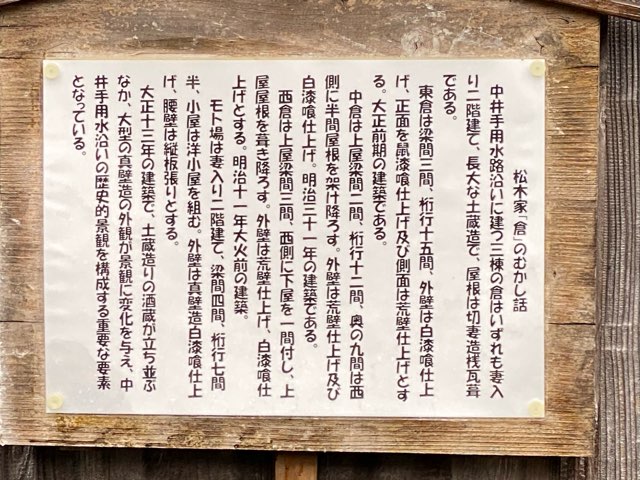 松木家「倉」のむかし話
中井手用水路沿いに建つ三棟の倉はいずれも妻入
り二階建て、長大な土蔵造で、屋根は切妻造桟瓦葺
である。
東倉は梁間三間、桁行十五間、外壁は白漆喰仕上
げ、正面を鼠漆喰仕上げ及び側面は荒壁仕上げとす
る。大正前期の建築である。
中倉は上屋梁間二間、桁行十二間、奥の九間は西
側に半間屋根を架け降ろす。外壁は荒壁仕上げ及び
白漆喰仕上げ。明治三十一年の建築である。
西倉は上屋梁間三間、西側に下屋を一間付し、上
屋屋根を葺き降ろす。外壁は荒壁仕上げ、白漆喰仕
上げとする。明治十一年大火前の建築。
モト場は妻入り二階建て、梁間四間、桁行七間
半、小屋は洋小屋を組む。外壁は真壁造白漆喰仕上
げ、腰壁は縦板張りとする。
大正十三年の建築で、土蔵造りの酒蔵が立ち並ぶ
なか、大型の真壁造の外観が景観に変化を与え、中
井手用水沿いの歴史的景観を構成する重要な要素
となっている。